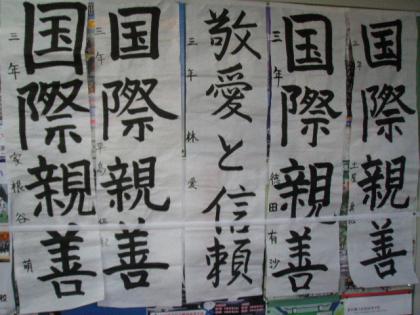 国際親善
三年 徳田有沙
国際親善
三年
敬愛と信頼
三年 林 愛
国際親善
三年
国際親善
三年 家根谷 萌